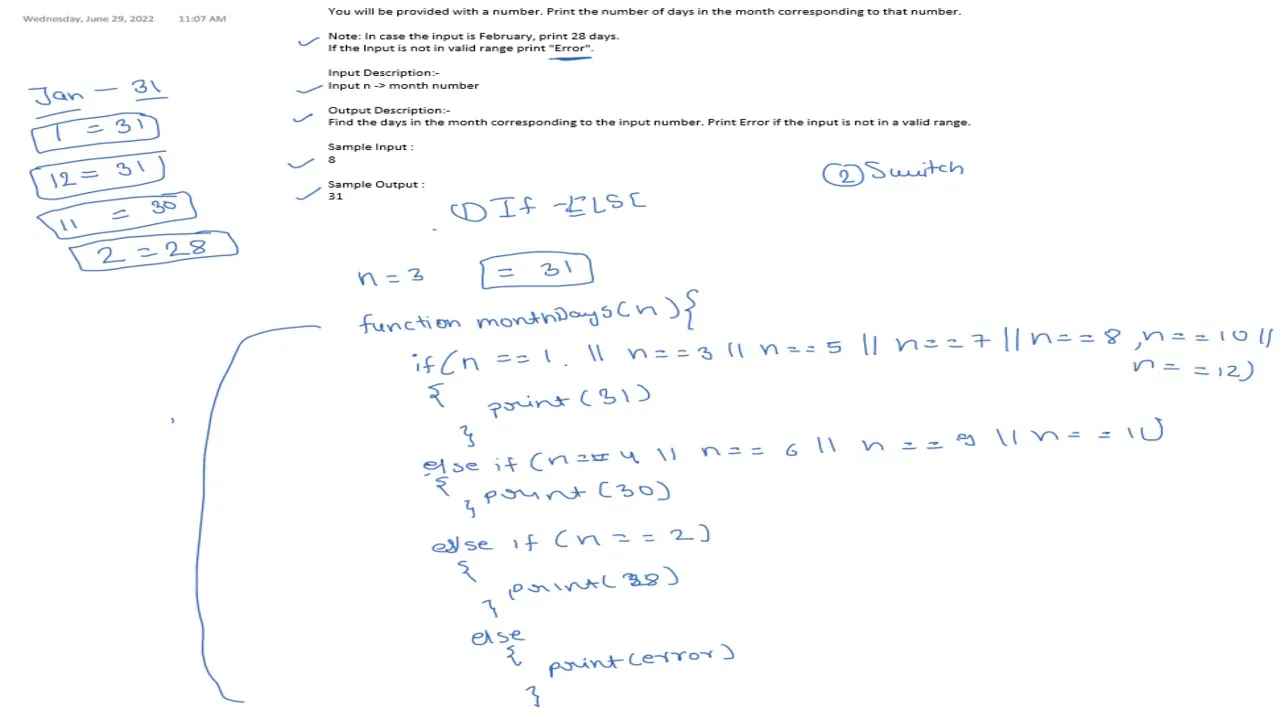 Wednesday, June 29, 2022 11:07 AM
You will be provided with a number. Print the number of days in the month corresponding to that number.
Note: In case the input is February, print 28 days.
If the Input is not in valid range print "Error".
Input Description:-
Input n -> month number
Output Description:-
Find the days in the month corresponding to the input number. Print Error if the input is not in a valid range.
Sample Input :
8
Sample Output :
31
Jan - 31
1 = 31
12 = 31
11 = 30
2 = 28
② Switch
① If - ELSE
n = 3 = 31
function monthDays(n){
if(n == 1 || n == 3 || n == 5 || n == 7 || n == 8 , n == 10 ||
n == 12)
{
print(31)
}
else if (n == 4 || n == 6 || n == 9 || n == 11)
{
print(30)
}
else if (n == 2)
{
print(28)
}
else
{
print(error)
}